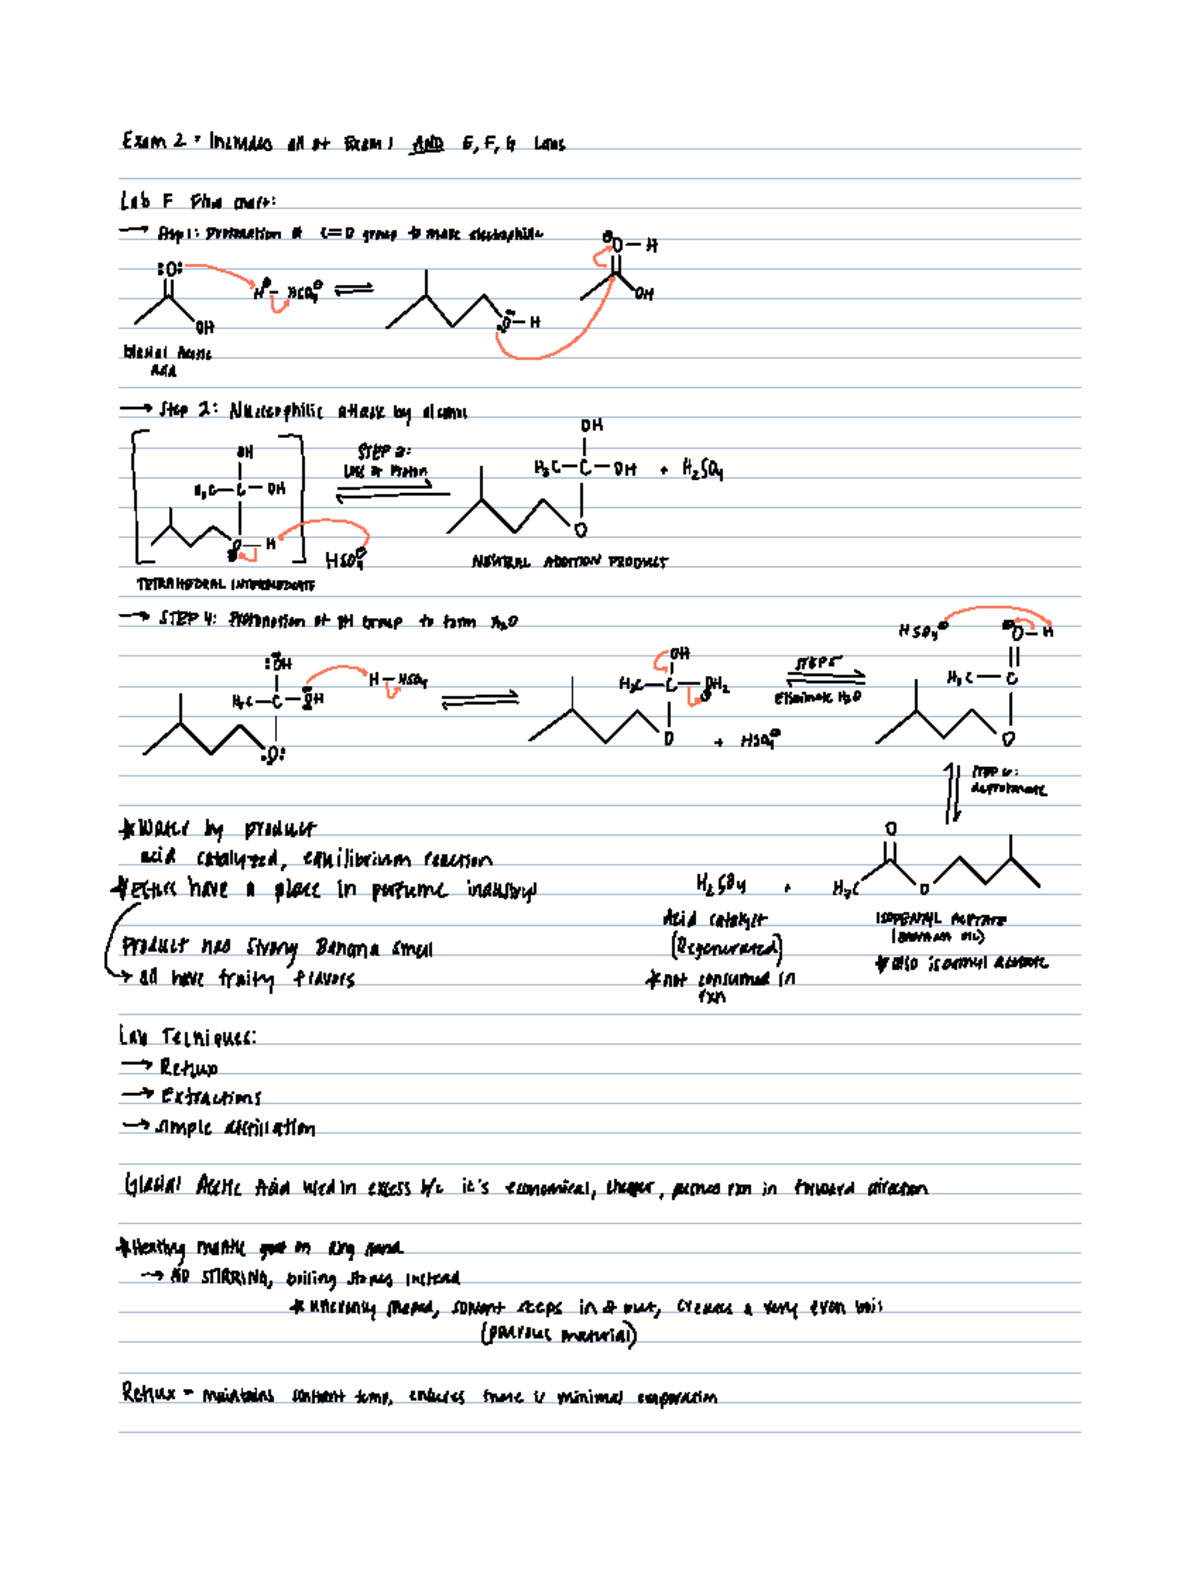 Exam 2 - Includes all of Exam 1 AND E, F, G Labs
Lab F Flow chart:
→ Step 1: Protonation of C=O group to make electrophilic
:O: H - HSO4⊖ ⊕O - H
OH O - H OH
Glacial Acetic
Acid
→ Step 2: Nucleophilic attack by alcohol
OH STEP 3: OH
Loss of Proton
H3C - C - OH H3C - C - OH + H2SO4
O - H HSO4⊖ O
TETRAHEDRAL INTERMEDIATE NEUTRAL ADDITION PRODUCT
→ STEP 4: Protonation of OH Group to form H2O
HSO4⊖ ⊕O - H
:OH OH STEP 5
H - HSO4 Eliminate H2O
H3C - C - OH H3C - C - OH2 H3C - C
:O: O + HSO4⊖ O
STEP 6:
deprotonate
* Water by product
acid catalyzed, equilibrium reaction
* Esters have a place in perfume industry!
Product has Strong Banana smell
→ all have fruity flavors
O
H2SO4 + H3C O
Acid catalyst
(Regenerated)
* not consumed in
rxn
ISOPENTYL ACETATE
(banana oil)
* also isoamyl acetate
Lab Tecniques:
→ Reflux
→ Extractions
→ simple distillation
Glacial Acetic Acid used in excess b/c it's economical, cheaper, pushes rxn in forward direction
* Heating mantle goes on ring stand
→ NO STIRRING, boiling stones instead
* unevenly shaped, solvent seeps in & out, creates a very even boil
(porous material)
Reflux - maintains solvent temp, ensures there is minimal evaporation